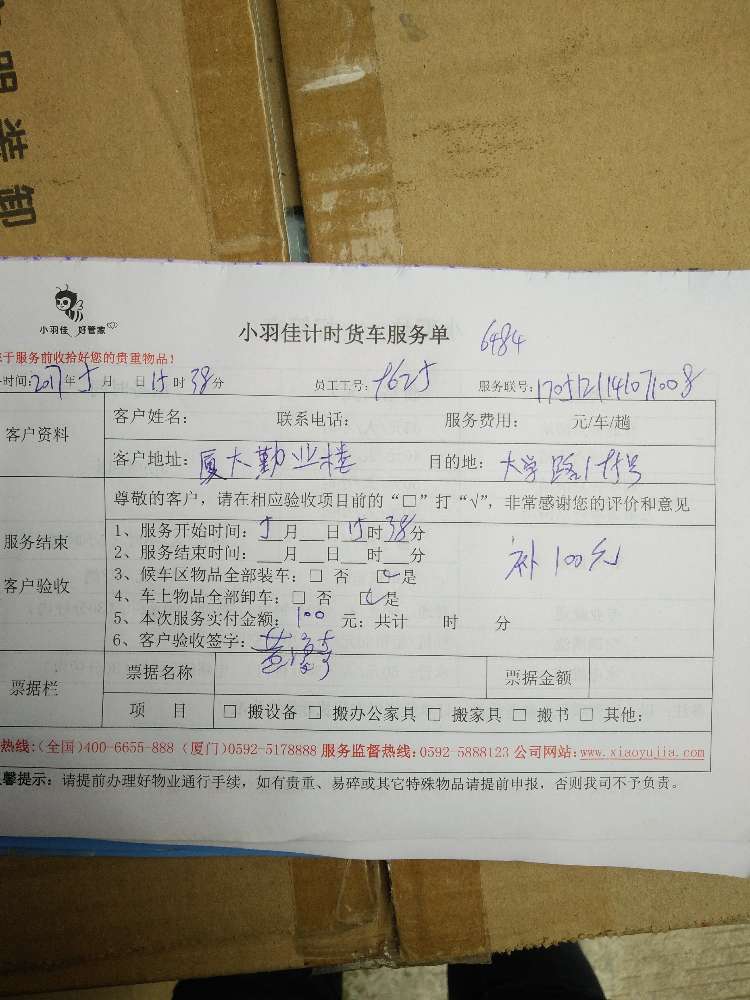 服装卸
小羽佳 好管家
小羽佳计时货车服务单 6484
于服务前收拾好您的贵重物品!
时间:2017年5月 日15时38分 员工工号: 服务联号:1705121141071008
客户资料
客户姓名: 联系电话: 服务费用: 元/车/趟
客户地址:厦大勤业楼 目的地:大学路
尊敬的客户,请在相应验收项目前的“□”打“√”,非常感谢您的评价和意见
服务结束
客户验收
1、服务开始时间:5月__日15时38分
2、服务结束时间:___月__日__时__分
补100元
3、候车区物品全部装车:□ 否 ☑是
4、车上物品全部卸车:□ 否 ☑是
5、本次服务实付金额:100 元;共计 时 分
6、客户验收签字:
票据栏
票据名称 票据金额
项 目 □ 搬设备 □ 搬办公家具 □ 搬家具 □ 搬书 □ 其他:
热线:(全国)400-6655-888 (厦门)0592-5178888 服务监督热线:0592-5888123 公司网站:www.xiaoyujia.com
馨提示:请提前办理好物业通行手续,如有贵重、易碎或其它特殊物品请提前申报,否则我司不予负责。